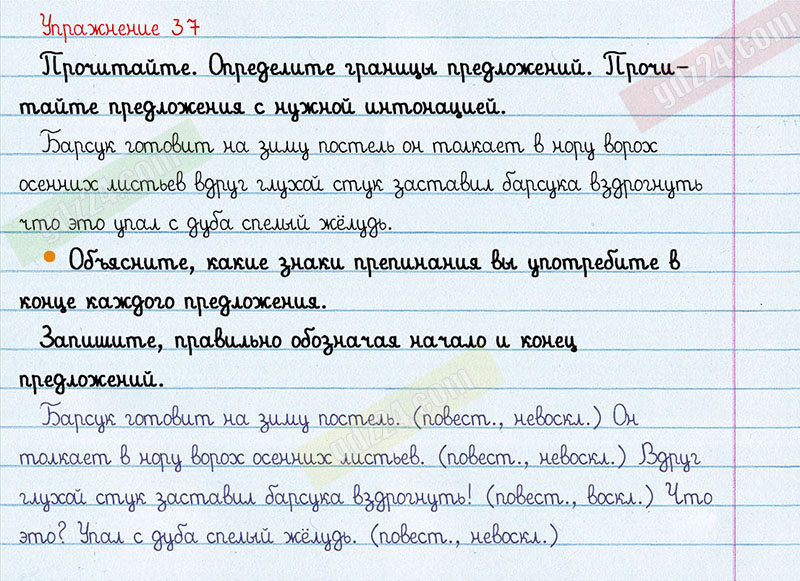 Упражнение 37
Прочитайте. Определите границы предложений. Прочи-
тайте предложения с нужной интонацией.
Барсук готовит на зиму постель он толкает в нору ворох
осенних листьев вдруг глухой стук заставил барсука вздрогнуть
что это упал с дуба спелый жёлудь.
• Объясните, какие знаки препинания вы употребите в
конце каждого предложения.
Запишите, правильно обозначая начало и конец
предложений.
Барсук готовит на зиму постель. (повест., невоскл.) Он
толкает в нору ворох осенних листьев. (повест., невоскл.) Вдруг
глухой стук заставил барсука вздрогнуть! (повест., воскл.) Что
это? Упал с дуба спелый жёлудь. (повест., невоскл.)
gdz24.com
gdz24.com
gdz24.com